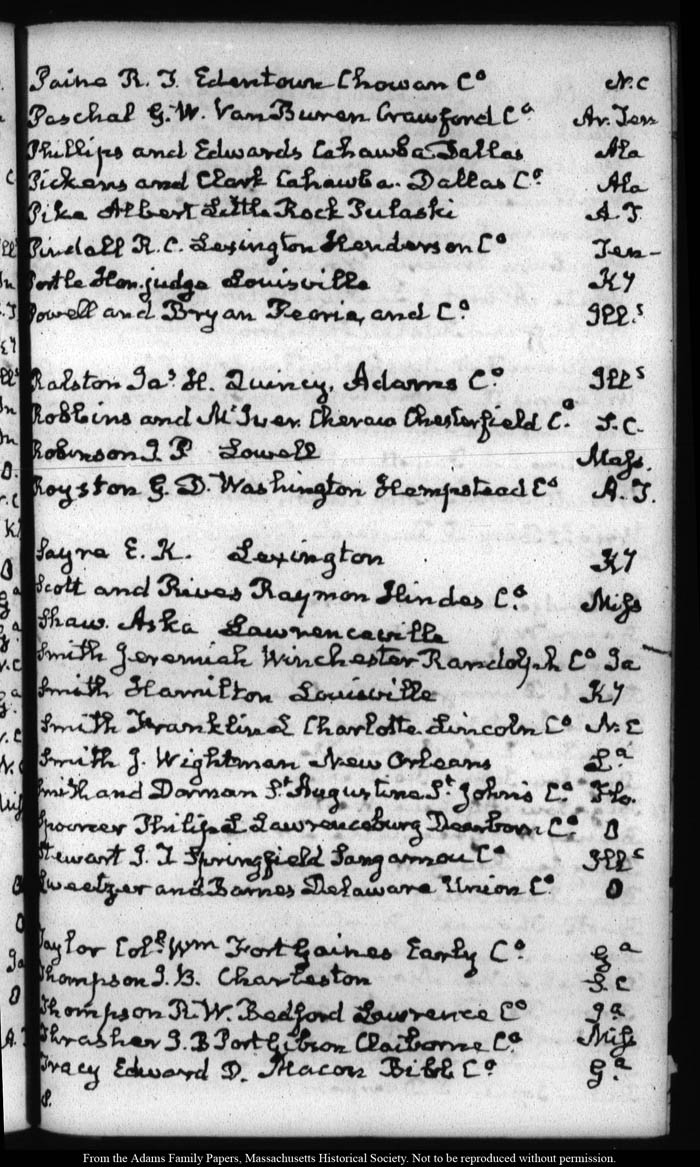 Paine R. T. Edentown Chowan Co N.C
Paschal G. W. Van Buren Crawford Co Ar. Ten
Phillips and Edwards Cahawba Dallas Ala
Pickens and Clark Cahawba. Dallas Co. Ala
Pike Albert Little Rock Pulaski A.T.
Pindall R. C. Lexington Henderson Co Ten-
Portle Hon. judge Louisville Ky
Powell and Bryan Peoria, and Co. Ills
Ralston Jas H. Quincy, Adams Co. Ills
Robbins and McIver. Cheraw Chesterfield Co. S.C.
Robinson J P Lowell Mass.
Royston G. D. Washington Hempstead Co A.T.
Sayre E. K. Lexington Ky
Scott and Rives Raymon Hindes Co. Miss
Shaw. Aska Lawrenceville
Smith Jeremiah Winchester Randolph Co Ia
Smith Hamilton Louisville Ky
Smith Franklin L Charlotte Lincoln Co N.C
Smith J. Wightman New Orleans La
Smith and Dorman St. Augustine St. John's Co. Flo.
Spooner Philip L Lawrenceburg Dearborn Co. O
Stewart J. T Springfield Sangamou Co. Ills
Sweetzer and Barnes Delaware Union Co. O
Taylor Coll Wm Fort Gaines Early Co. Ga
Thompson J. B. Charleston S.C
Thompson R. W. Bedford Lawrence Co Ia
Thrasher J. B Port Gibson Claiborne Co. Miss
Tracy Edward D. Macon Bibb Co. Ga.
From the Adams Family Papers, Massachusetts Historical Society. Not to be reproduced without permission.